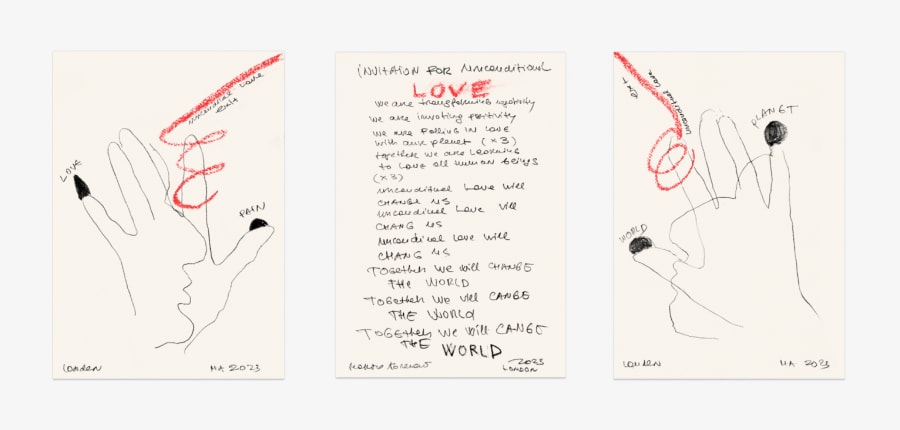 LOVE
Unconditional Love
Exit
PAIN
London
MA 2023
INVITAION FOR Unconditional
LOVE
we are transforming negativity
we are invoting positivity
we are falling IN LOVE
with our planet (x3)
together we are learning
to Love all human beings
(x3)
unconditional Love will
CHANGE US
uncondinal Love will
CHANG US
uncondinal Love will
CHANG US
TOGETHER WE will CHANGE
THE WORLD
TOGETHER WE will CANGE
THE WORLD
TOGETHER WE will CANGE
THE WORLD
2023
LONDON
Exit
unconditional Love
PLANET
WORLD
London
MA 2023